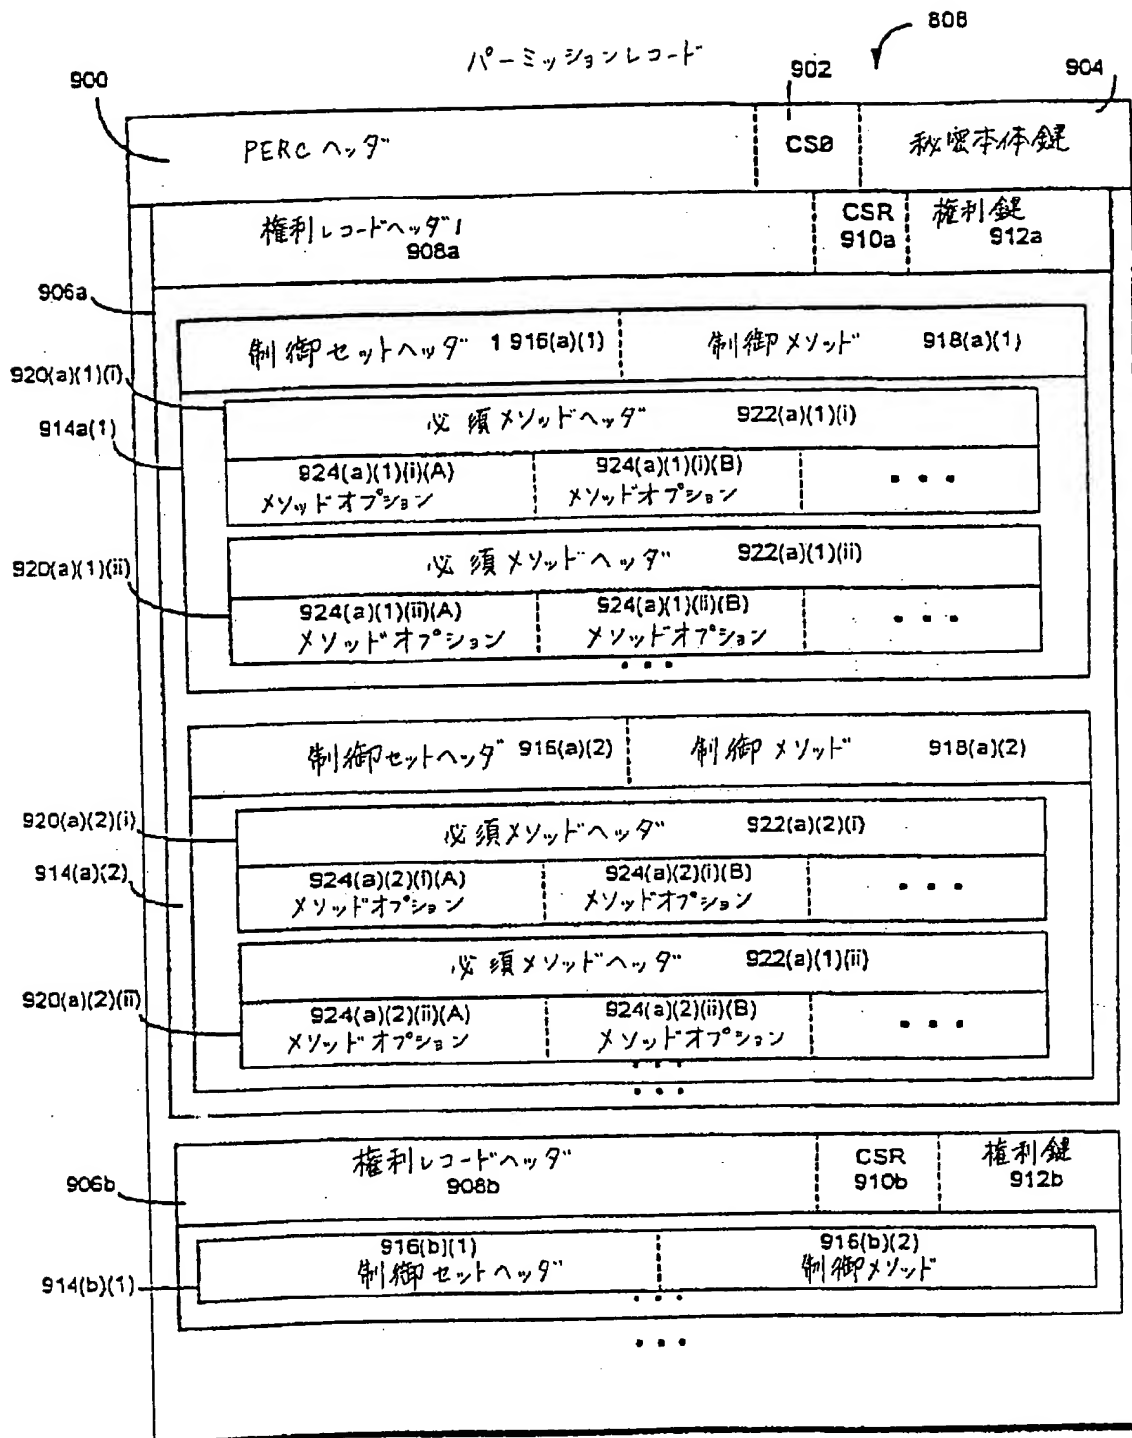 808
パーミッションレコード
900
902
904
PERC ヘッダ
CS0
秘密本体鍵
権利レコードヘッダ1
908a
CSR
910a
権利鍵
912a
906a
制御セットヘッダ 1 916(a)(1)
制御メソッド 918(a)(1)
920(a)(1)(i)
914a(1)
必須メソッドヘッダ 922(a)(1)(i)
924(a)(1)(i)(A)
メソッドオプション
924(a)(1)(i)(B)
メソッドオプション
• • •
920(a)(1)(ii)
必須メソッドヘッダ 922(a)(1)(ii)
924(a)(1)(ii)(A)
メソッドオプション
924(a)(1)(ii)(B)
メソッドオプション
• • •
• • •
制御セットヘッダ 916(a)(2)
制御メソッド 918(a)(2)
920(a)(2)(i)
914(a)(2)
必須メソッドヘッダ 922(a)(2)(i)
924(a)(2)(i)(A)
メソッドオプション
924(a)(2)(i)(B)
メソッドオプション
• • •
920(a)(2)(ii)
必須メソッドヘッダ 922(a)(1)(ii)
924(a)(2)(ii)(A)
メソッドオプション
924(a)(2)(ii)(B)
メソッドオプション
• • •
• • •
• • •
906b
権利レコードヘッダ
908b
CSR
910b
権利鍵
912b
914(b)(1)
916(b)(1)
制御セットヘッダ
916(b)(2)
制御メソッド
• • •
• • •